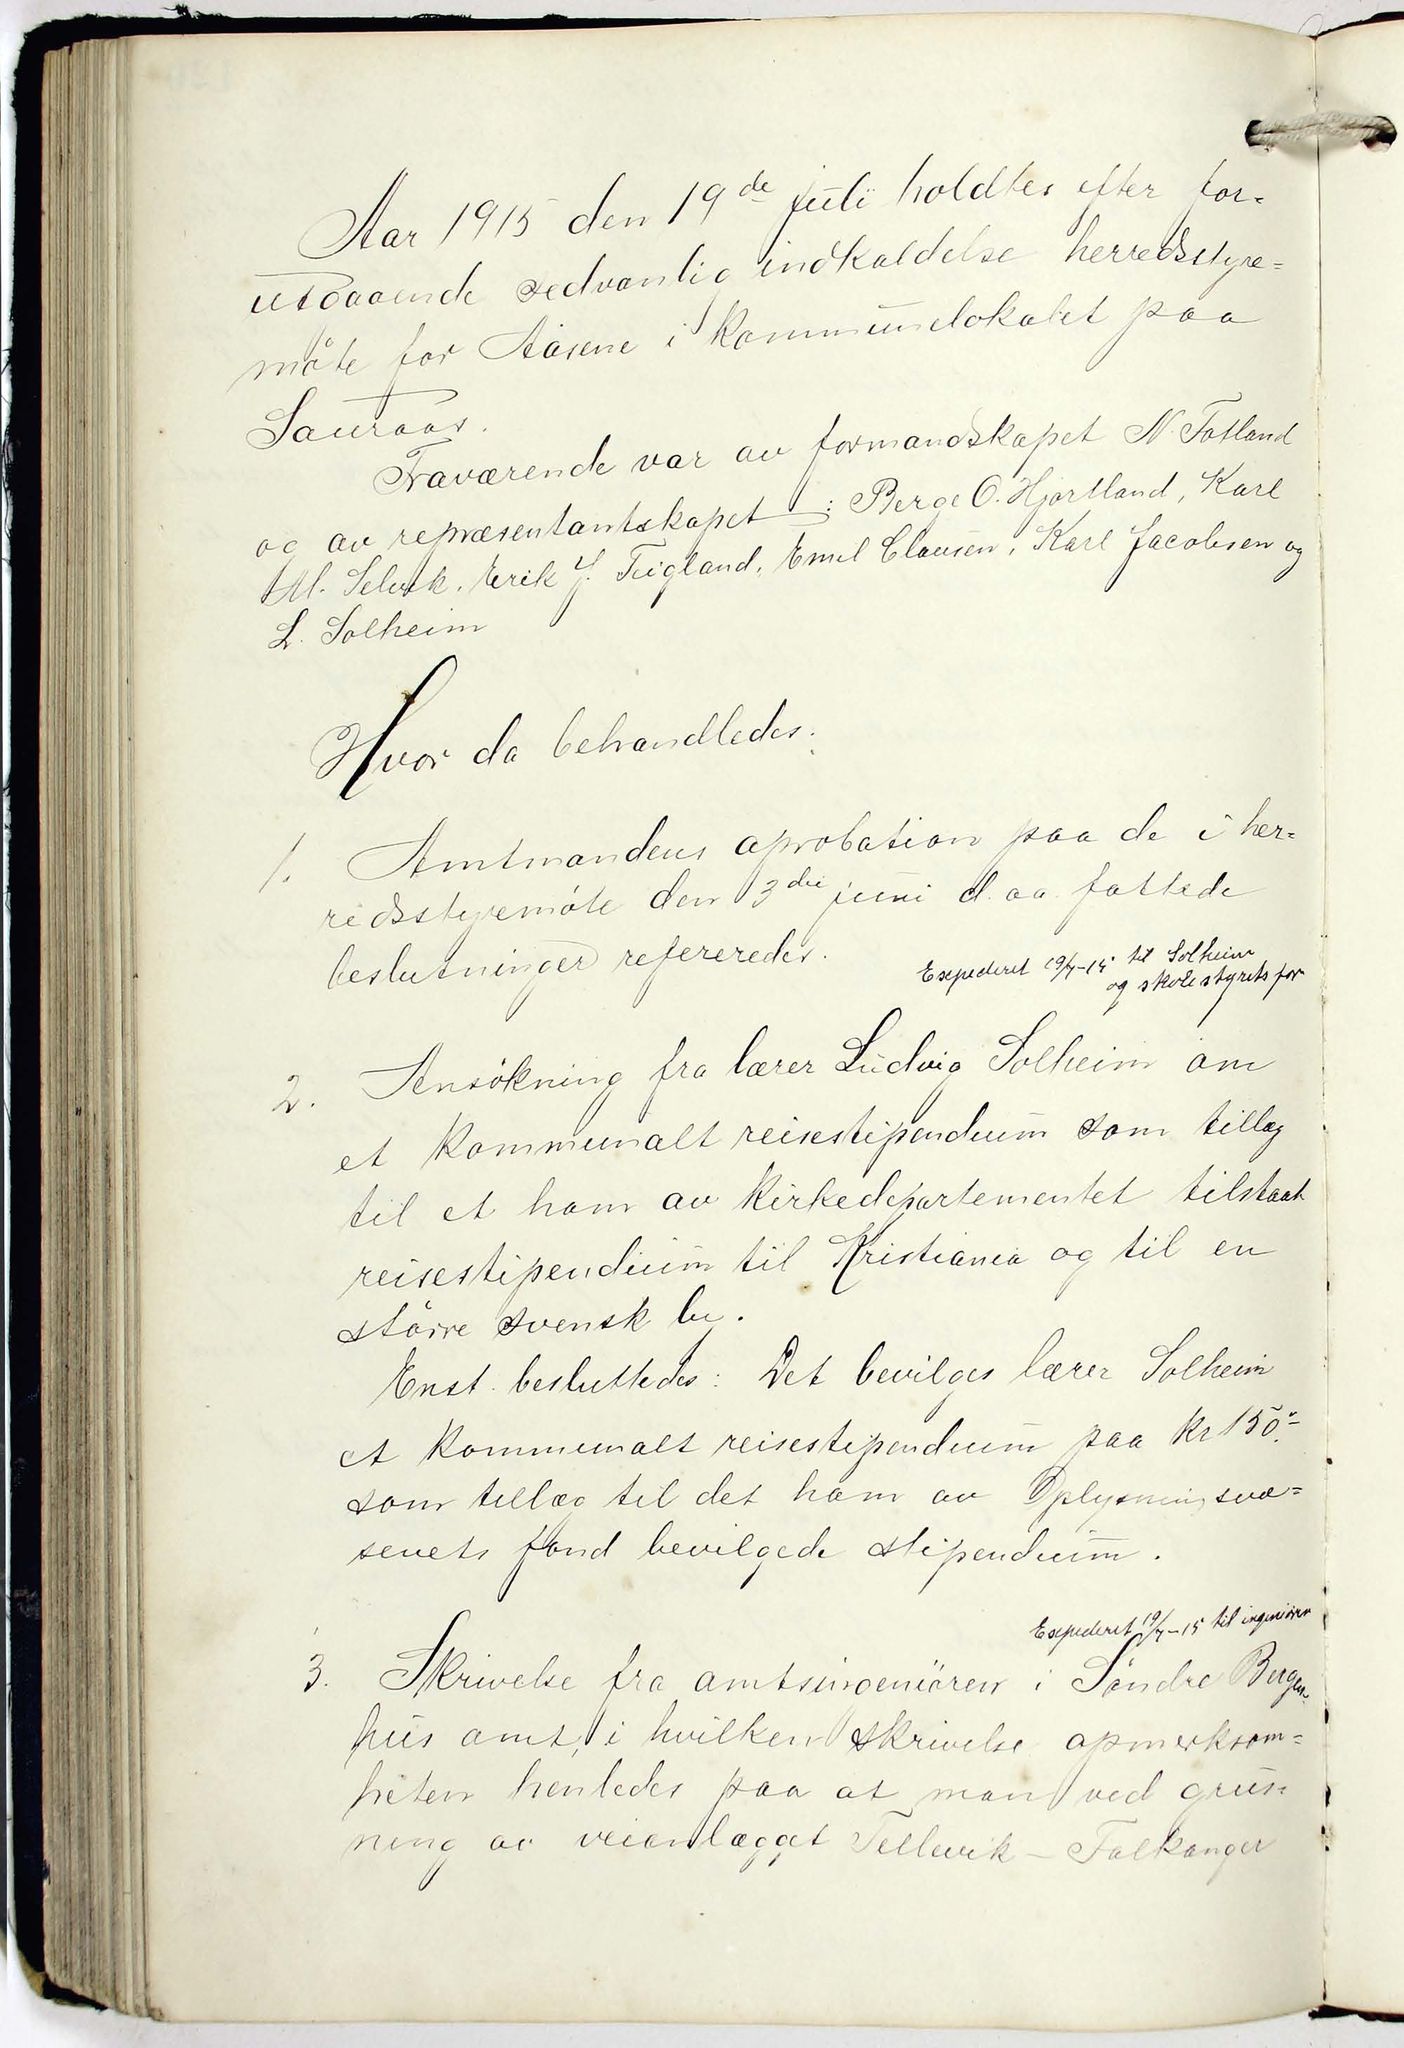 Aar 1915 den 19de juli holdtes efter for=
utgaaende sedvanlig indkaldelse herredsstyre=
möte for Aasene i kommunelokalet paa
Sauraas.
Fraværende var av formandskapet N. Totland
og av repræsentantskapet: Berge O. Hjortland, Karl
M. Selvik, Erik J. Teigland, Emil Clausen, Karl Jacobsen og
L. Solheim
Hvor da behandledes:
1. Amtmandens aprobation paa de i her=
redsstyremöte den 3die juni d. aa. fattede
beslutninger refereredes.
Expederet 19/7-15 til Solheim
og skolestyrets for
2. Ansökning fra lærer Ludvig Solheim om
et kommunalt reisestipendium som tillæg
til et ham av kirkedepartementet tilstaat
reisestipendium til Kristiania og til en
större svensk by.
Enst. besluttedes: Det bevilges lærer Solheim
et kommunalt reisestipendium paa kr 150.-
som tillæg til det ham av Oplysningsvæ=
senets fond bevilgede stipendium.
Expederet 19/7-15 til ingeniören
3. Skrivelse fra amtsingeniören i Söndre Bergen-
hus amt, i hvilken skrivelse opmerksom=
heten henledes paa at man ved grus=
ning av veianlægget Tellevik - Falkanger